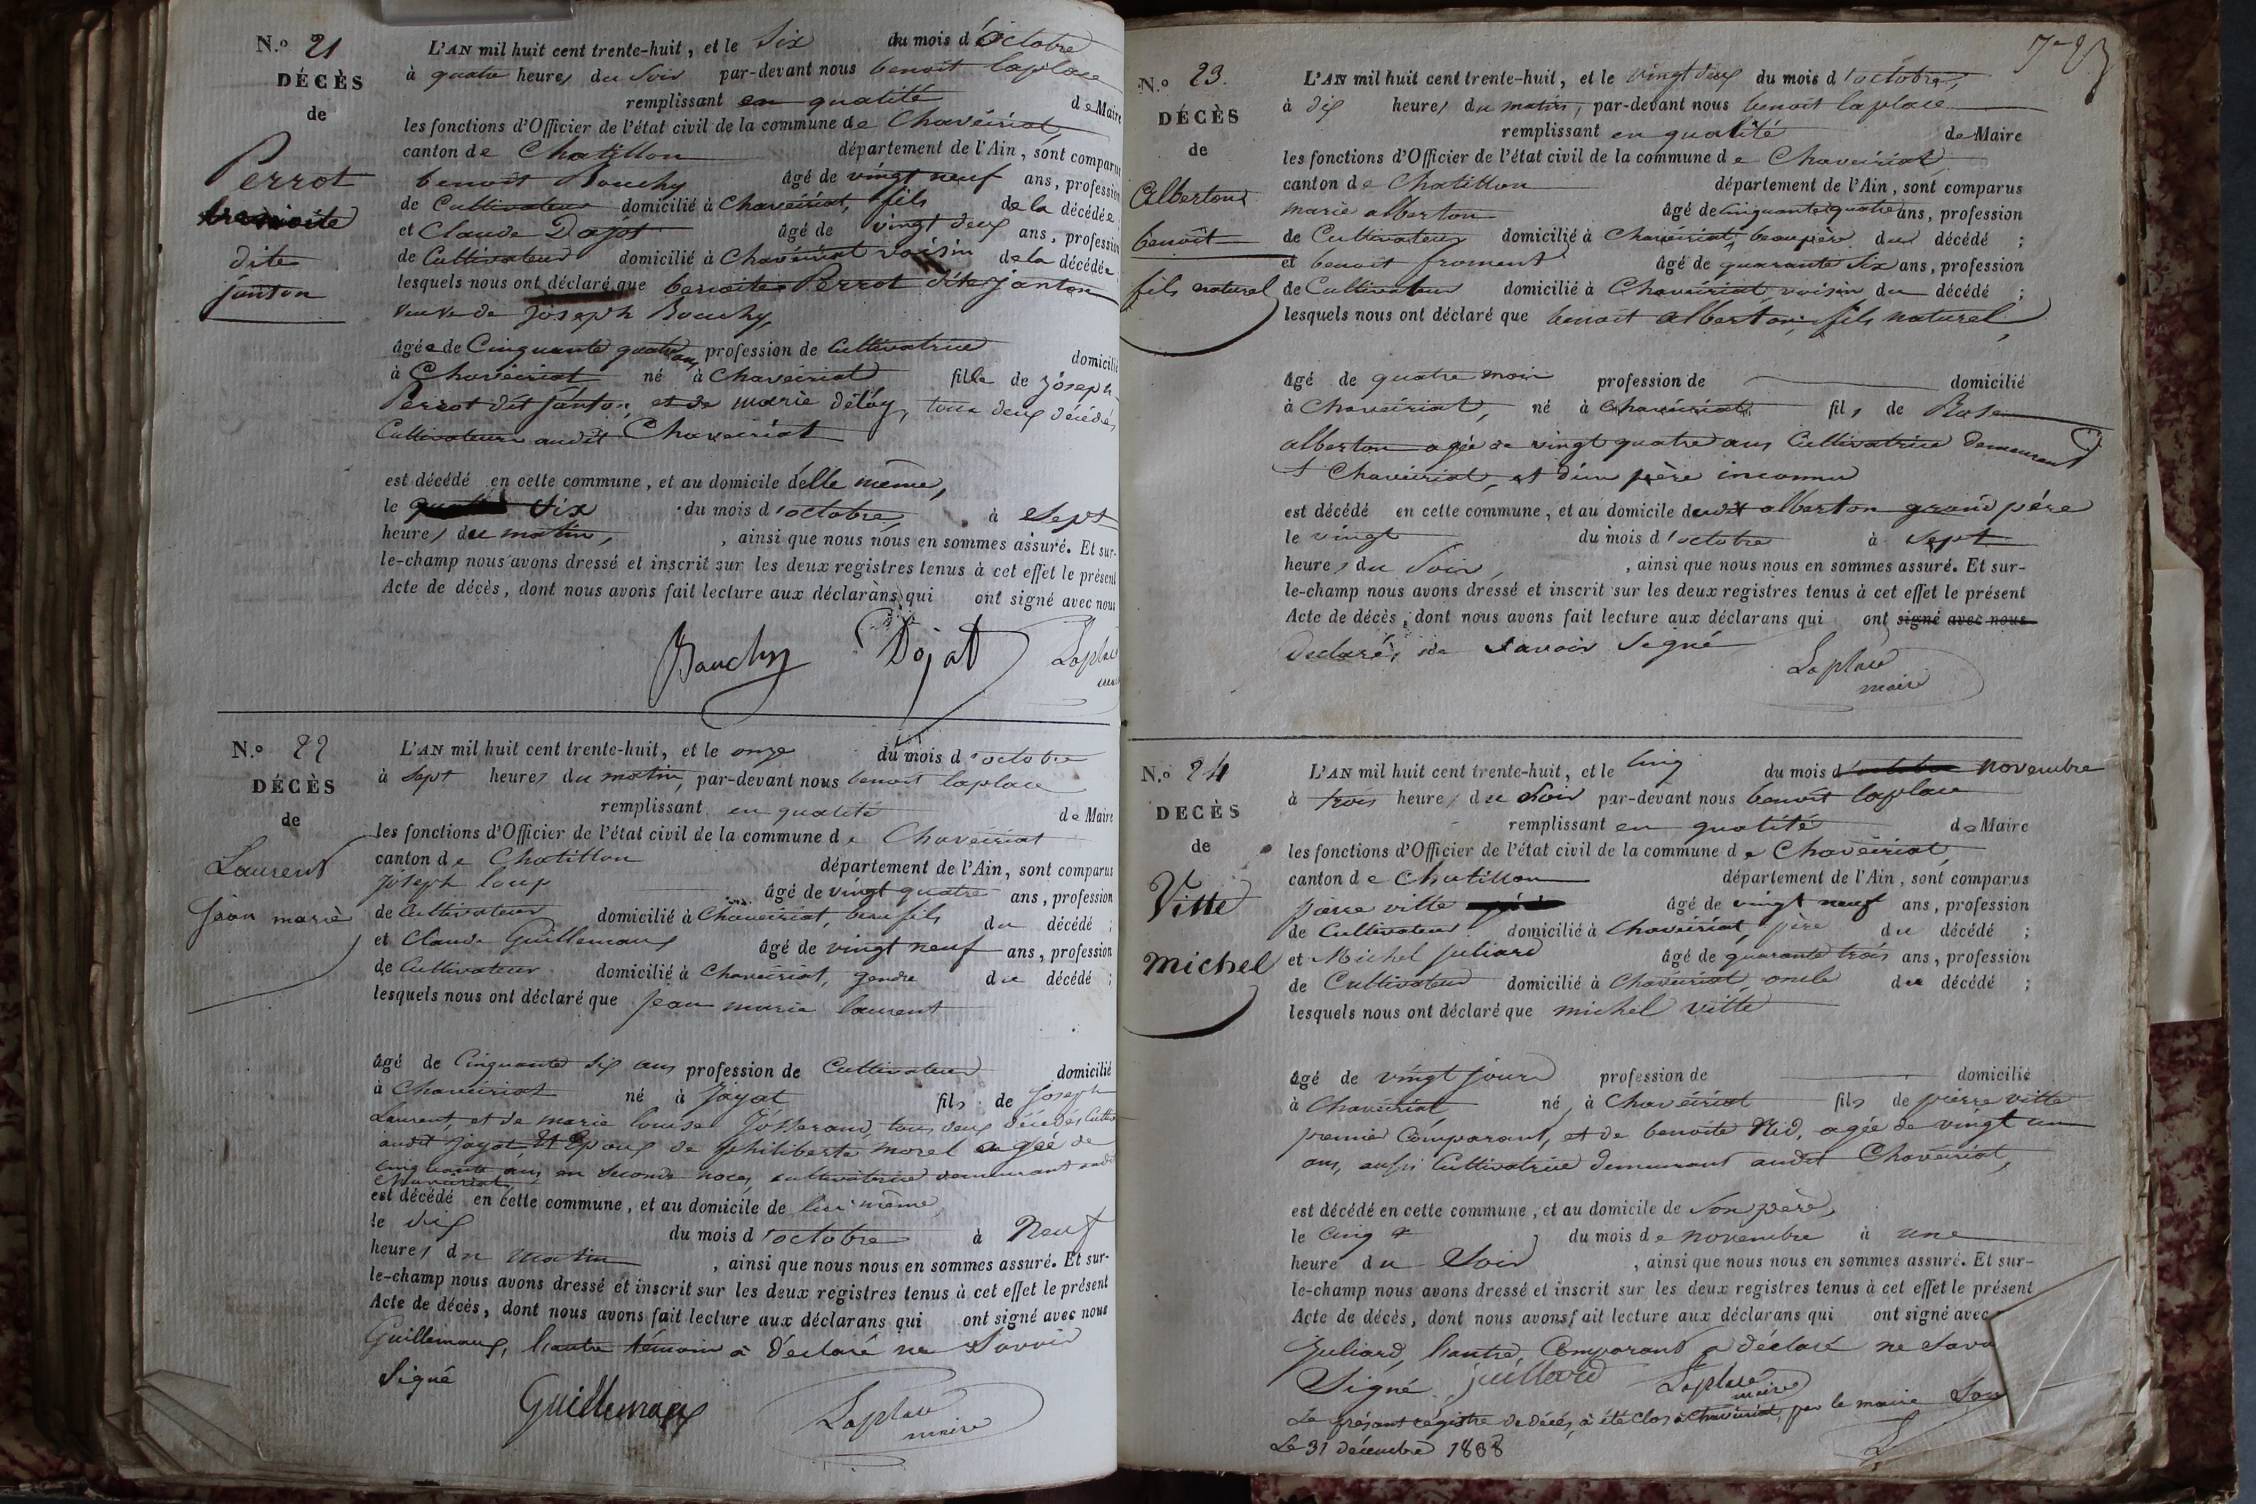 N.º 21
DÉCÈS
de
Perrot
benoite
dite
janton
L'AN mil huit cent trente-huit, et le Six du mois d'octobre
à quatre heures du Soir par-devant nous benoit laplace
remplissant en qualité de Maire
les fonctions d'Officier de l'état civil de la commune de Chaveiriat,
canton de Chatillon département de l'Ain, sont comparus
benoit Bouchy âgé de vingt neuf ans, profession
de Cultivateur domicilié à Chaveiriat, fils de la décédée
et Claude Dojat âgé de vingt deux ans, profession
de Cultivateur domicilié à Chaveiriat voisin de la décédée
lesquels nous ont déclaré que benoite Perrot dite janton
veuve de joseph Bouchy,
âgée de Cinquante quatre ans profession de Cultivatrice domicilié
à Chaveiriat, né à Chaveiriat fille de joseph
Perrot dit janton, et de marie déloy, tous deux décédés,
Cultivateurs audit Chaveiriat
est décédé en cette commune, et au domicile delle même,
le Six du mois d'octobre, à Sept
heures du matin, , ainsi que nous nous en sommes assuré. Et sur-
le-champ nous avons dressé et inscrit sur les deux registres tenus à cet effet le présent
Acte de décès, dont nous avons fait lecture aux déclarans qui ont signé avec nous
Bouchy Dojat Laplace
N.º 22
DÉCÈS
de
Laurent
Jean marie
L'AN mil huit cent trente-huit, et le onze du mois d'octobre
à Sept heures du matin, par-devant nous benoit laplace
remplissant en qualité de Maire
les fonctions d'Officier de l'état civil de la commune de Chaveiriat
canton de Chatillon département de l'Ain, sont comparus
joseph loup âgé de vingt quatre ans, profession
de Cultivateur domicilié à Chaveiriat, beau fils du décédé ;
et Claude Guillemaux âgé de vingt neuf ans, profession
de Cultivateur domicilié à Chaveiriat, gendre du décédé ;
lesquels nous ont déclaré que Jean marie laurent
âgé de Cinquante Six ans profession de Cultivateur domicilié
à Chaveiriat né à Jayat fils de Joseph
Laurent, et de marie louise Josserand, tous deux décédés
audit Jayat Et Epoux de philiberte morel agée de
cinquante ans, en seconde noces, cultivatrice demeurant audit
Chaveiriat,
est décédé en cette commune, et au domicile de lui même
le dix du mois d'octobre à Neuf
heures du matin , ainsi que nous nous en sommes assuré. Et sur-
le-champ nous avons dressé et inscrit sur les deux registres tenus à cet effet le présent
Acte de décès, dont nous avons fait lecture aux déclarans qui ont signé avec nous
Guillemaux, l'autre témoin a déclaré ne Savoir
Signé
Guillemaux Laplace
maire
N.º 23.
DÉCÈS
de
Alberton
benoît
fils naturel
L'AN mil huit cent trente-huit, et le vingt deux du mois d'octobre,
à dix heures du matin, par-devant nous benoit laplace
remplissant en qualité de Maire
les fonctions d'Officier de l'état civil de la commune de Chaveiriat,
canton de Chatillon département de l'Ain, sont comparus
marie alberton âgé de cinquante quatre ans, profession
de Cultivateur domicilié à Chaveiriat, beaupère du décédé ;
et benoit froment âgé de quarante Six ans, profession
de Cultivateur domicilié à Chaveiriat, voisin du décédé ;
lesquels nous ont déclaré que benoit alberton, fils naturel,
âgé de quatre mois profession de domicilié
à Chaveiriat, né à Chaveiriat, fils de Rose
alberton agée de vingt quatre ans Cultivatrice demeurant
à Chaveiriat, et d'un père inconnu
est décédé en cette commune, et au domicile dudit alberton grand père
le vingt du mois d'octobre à Sept
heures du Soir, , ainsi que nous nous en sommes assuré. Et sur-
le-champ nous avons dressé et inscrit sur les deux registres tenus à cet effet le présent
Acte de décès, dont nous avons fait lecture aux déclarans qui ont signé avec nous
déclarés ne savoir Signé
Laplace
maire
N.º 24
DECÈS
de
Vitte
Michel
L'AN mil huit cent trente-huit, et le cinq du mois d'octobre novembre
à trois heures du Soir par-devant nous benoit laplace
remplissant en qualité de Maire
les fonctions d'Officier de l'état civil de la commune de Chaveiriat,
canton de Chatillon département de l'Ain, sont comparus
pierre vitte âgé de vingt neuf ans, profession
de Cultivateur domicilié à Chaveiriat, père du décédé ;
et Michel juliard âgé de quarante trois ans, profession
de Cultivateur domicilié à Chaveiriat, oncle du décédé ;
lesquels nous ont déclaré que michel vitte
âgé de vingt jours profession de domicilié
à Chaveiriat né à Chaveiriat fils de pierre vitte
premier Comparant, et de benoite Nid, agée de vingt un
ans, aussi Cultivatrice demeurant audit Chaveiriat,
est décédé en cette commune, et au domicile de Son père,
le cinq du mois de novembre à une
heure du Soir , ainsi que nous nous en sommes assuré. Et sur-
le-champ nous avons dressé et inscrit sur les deux registres tenus à cet effet le présent
Acte de décès, dont nous avons fait lecture aux déclarans qui ont signé avec
Juliard, l'autre Comparant a déclaré ne Savo
Signé juillard Laplace
maire
Le présent régistre de décès, a été clos à Chaveiriat, par le maire Sous
Le 31 décembre 1838